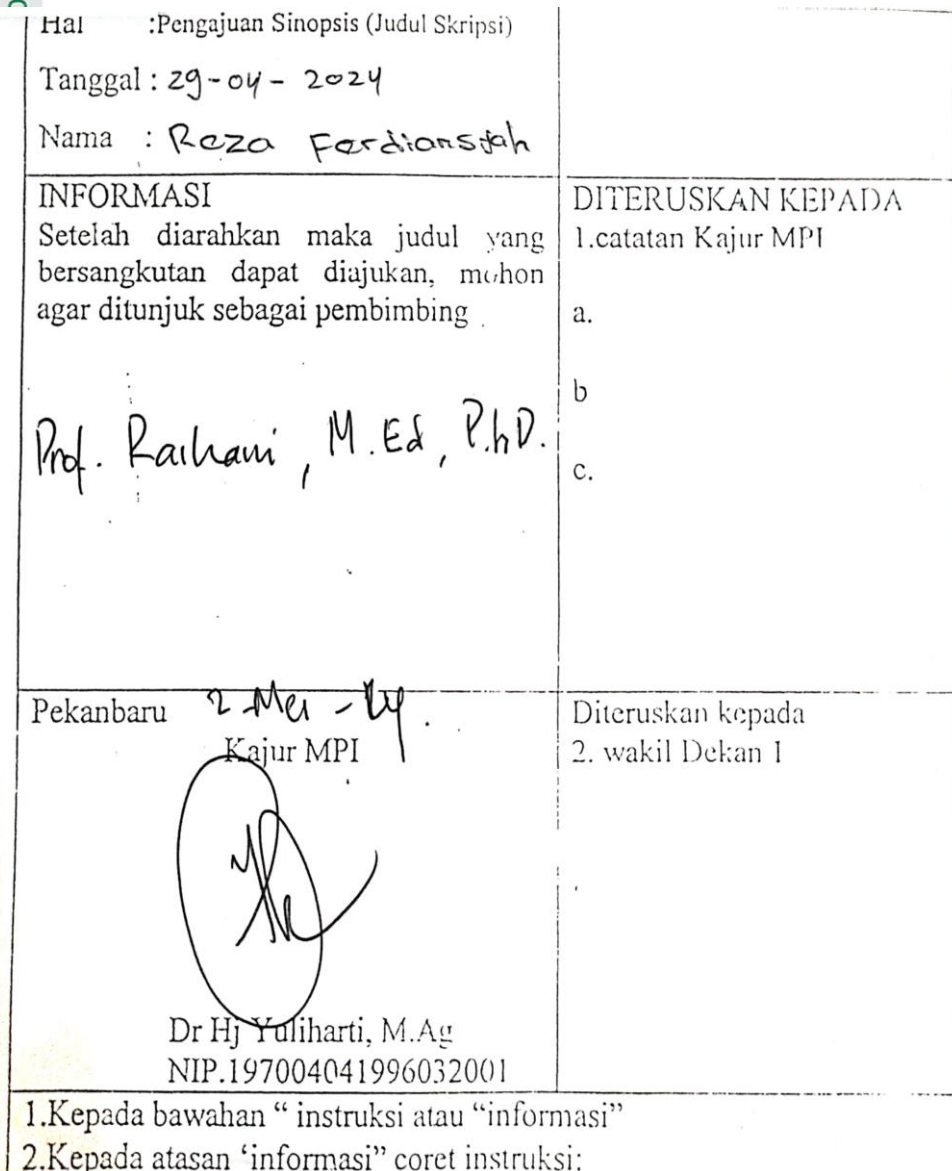 Hal :Pengajuan Sinopsis (Judul Skripsi)
Tanggal : 29-04-2024
Nama : Reza Ferdiansjah
INFORMASI
Setelah diarahkan maka judul yang
bersangkutan dapat diajukan, mohon
agar ditunjuk sebagai pembimbing
Prof. Raihani, M.Ed, P.hD.
DITERUSKAN KEPADA
1.catatan Kajur MPI
a.
b
c.
Pekanbaru 2-Mei-24.
Kajur MPI
Dr Hj Yuliharti, M.Ag
NIP.197004041996032001
Diteruskan kepada
2. wakil Dekan 1
1.Kepada bawahan “ instruksi atau “informasi”
2.Kepada atasan ‘informasi” coret instruksi: